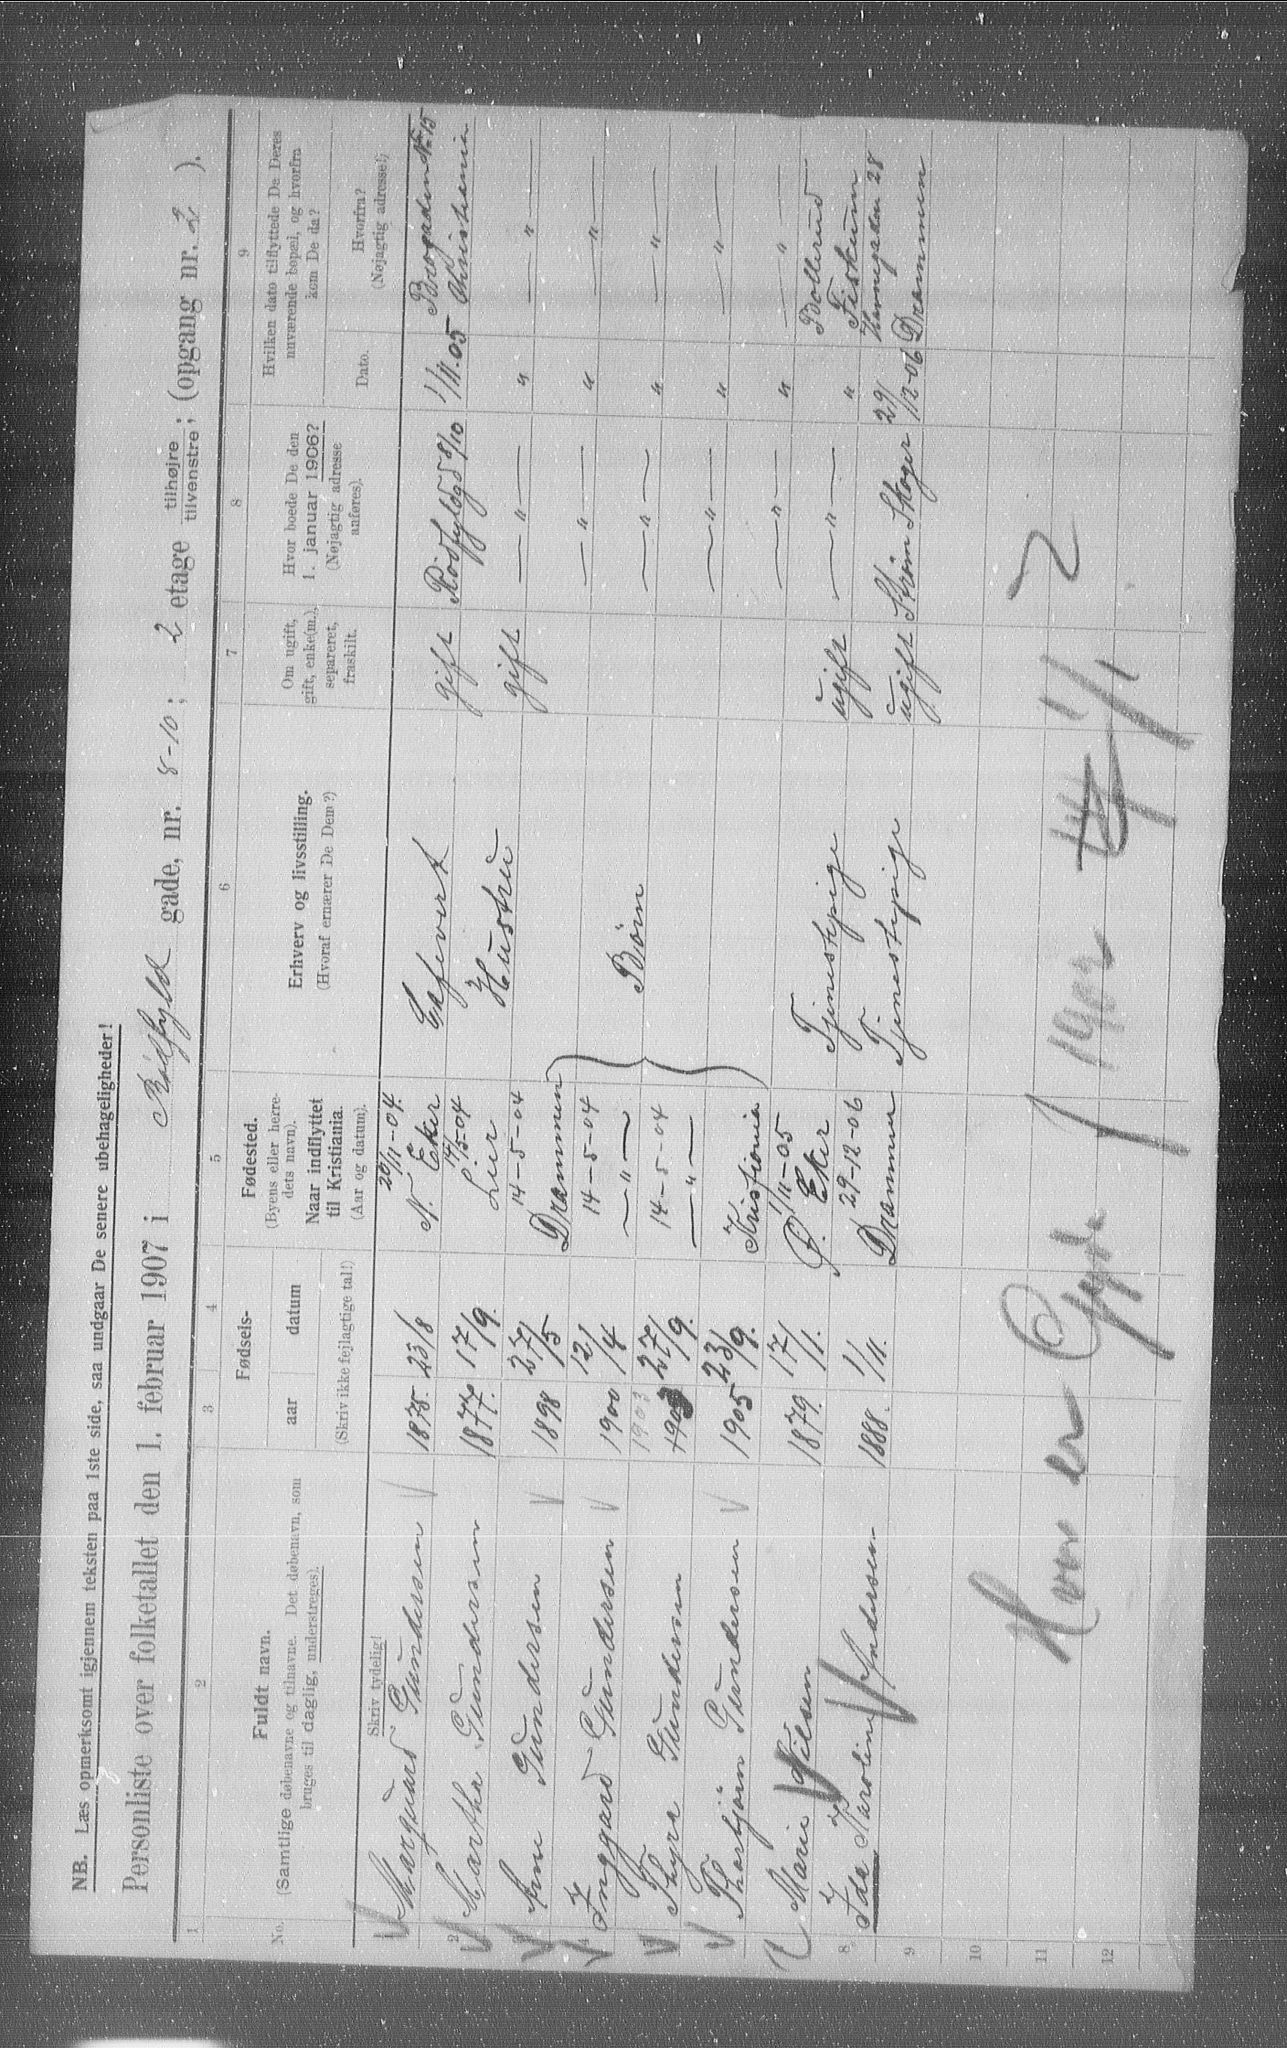 NB. Læs opmerksomt igjennem teksten paa 1ste side, saa undgaar De senere ubehageligheder!
Personliste over folketallet den 1. februar 1907 i Rödfyld gade, nr. 8-10; 2 etage tilhøjre tilvenstre; (opgang nr. 2 ).
1 2 3 4 5 6 7 8 9
No.
Fuldt navn.
(Samtlige døbenavne og tilnavne. Det døbenavn, som
bruges til daglig, understreges).
Skriv tydelig!
Fødsels-
aar datum
(Skriv ikke fejlagtige tal!)
Fødested.
(Byens eller herre-
dets navn).
Naar indflyttet
til Kristiania.
(Aar og datum).
Erhverv og livsstilling.
(Hvoraf ernærer De Dem?)
Om ugift,
gift, enke(m.),
separeret,
fraskilt.
Hvor boede De den
1. januar 1906?
(Nøjagtig adresse
anføres).
Hvilken dato tilflyttede De Deres
nuværende bopæl, og hvorfra
kom De da?
Dato.
Hvorfra?
(Nøjagtig adresse!)
Marquard Gundersen 1875. 23/8 20/11-04. N. Eker gift Rödfyldgd 8/10 1/11.05 Brogaden No 15 Christiania
2 Martha Gundersen 1877. 17/9. 14/5-04 Lier Hustru gift —"— " —"—
Arne Gundersen 1898 27/5 14-5-04 Drammen —"— " —"—
4 Inggard Gundersen 1900 12/4 14-5-04 —"— Börn —"— " —"—
Thyra Gundersen 1903 27/9. 14-5-04 —"— —"— " —"—
Thorbjörn Gundersen 1905 23/9. Kristiania —"— " —"—
Marie Nilsen 1879. 17/1. 1/11-05 Ø. Eker Tjenestepige ugift —"— " Bollerud Fiskum
8 Ida Karoline Andersen 1888. 1/11. 29-12-06 Drammen Tjenestepige ugift Ström Skoger 29/12-06 Havnegaden 28 Drammen
9
10
11
12
Hvor er Gyda
1902 1/1